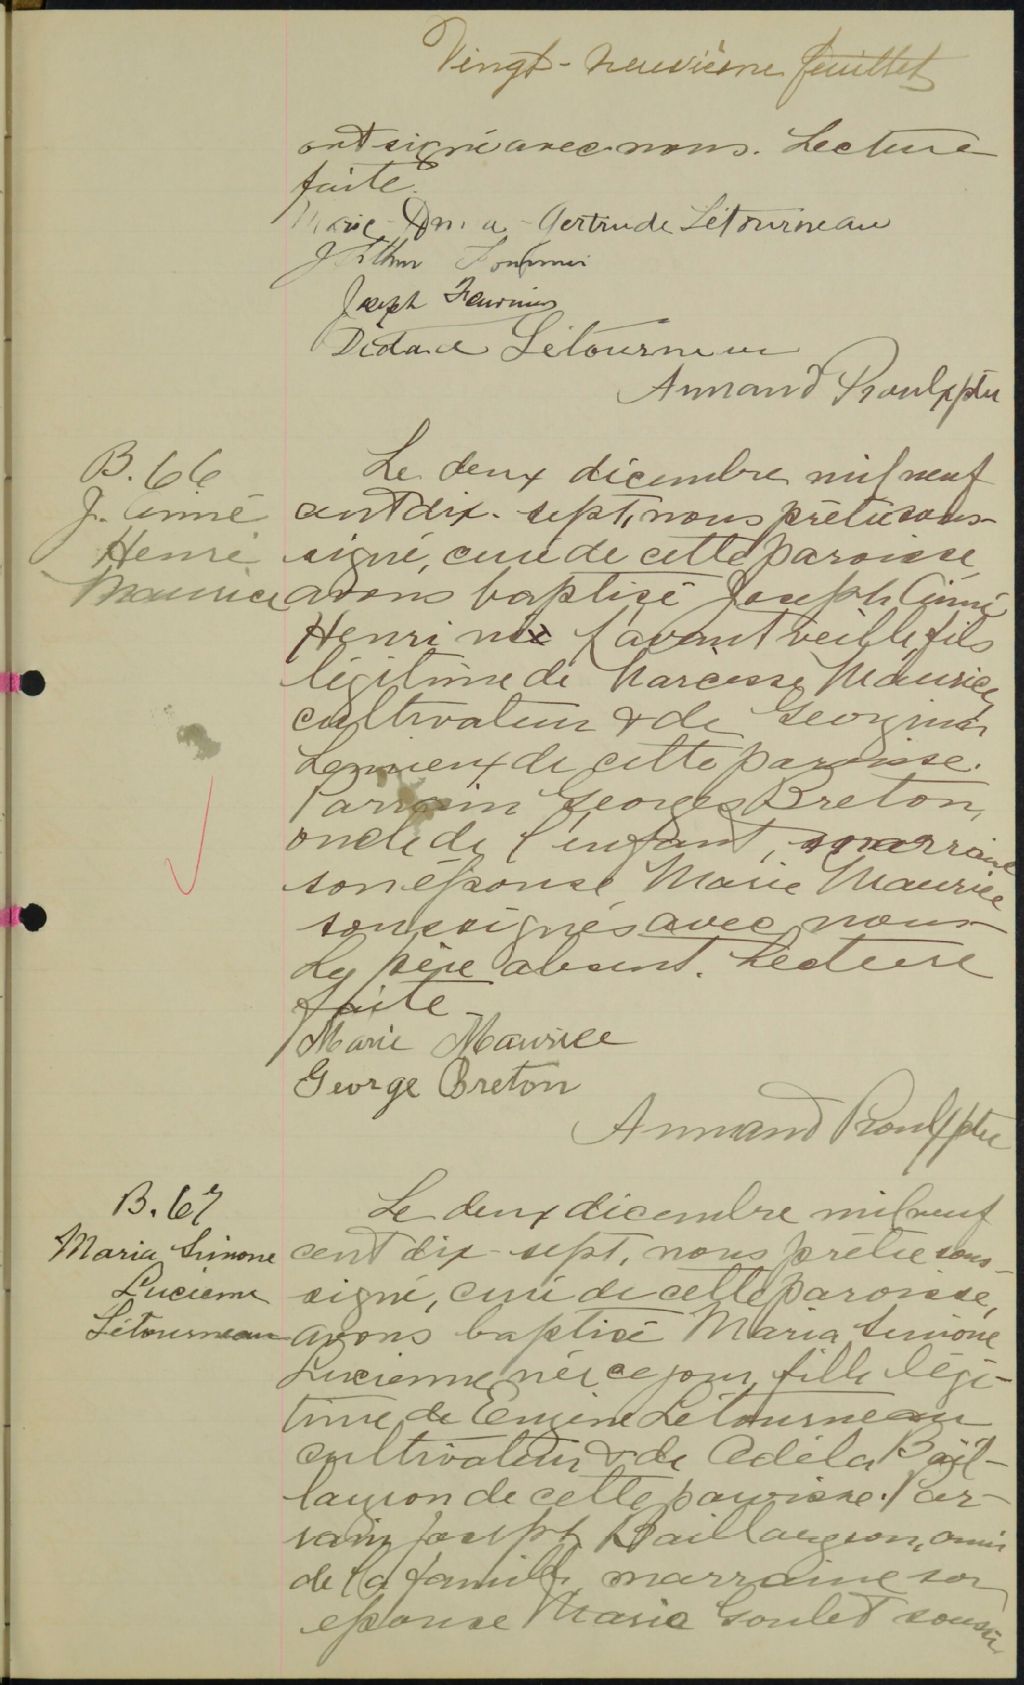 Vingt-neuvième feuillet
ont signé avec nous. Lecture
faite.
Marie - - Gertrude Létourneau
Arthur Fournier
Joseph Fournier
Létourneau
Armand Proulx ptre
B. 66
J. Aimé
Henri
Maurice
Le deux décembre mil neuf
cent dix-sept, nous prêtre sous-
signé, curé de cette paroisse
avons baptisé Joseph Aimé
Henri né l'avant veille, fils
légitime de Narcisse Maurice,
cultivateur & de Georgina
Lemieux de cette paroisse.
Parrain Georges Breton,
oncle de l'enfant, marraine
son épouse Marie Maurice
soussignés avec nous
Le père absent. Lecture
faite -
Marie Maurice
George Breton
Armand Proulx ptre
B. 67
Maria Simone
Lucienne
Létourneau
Le deux décembre mil neuf
cent dix-sept, nous prêtre sous-
signé, curé de cette paroisse,
avons baptisé Maria Simone
Lucienne née ce jour, fille légi-
time de Eugène Létourneau
cultivateur & de Adéla Bail-
largeon de cette paroisse. Par-
rain Joseph Baillargeon, ami
de la famille, marraine son
épouse Marie Goulet soussi